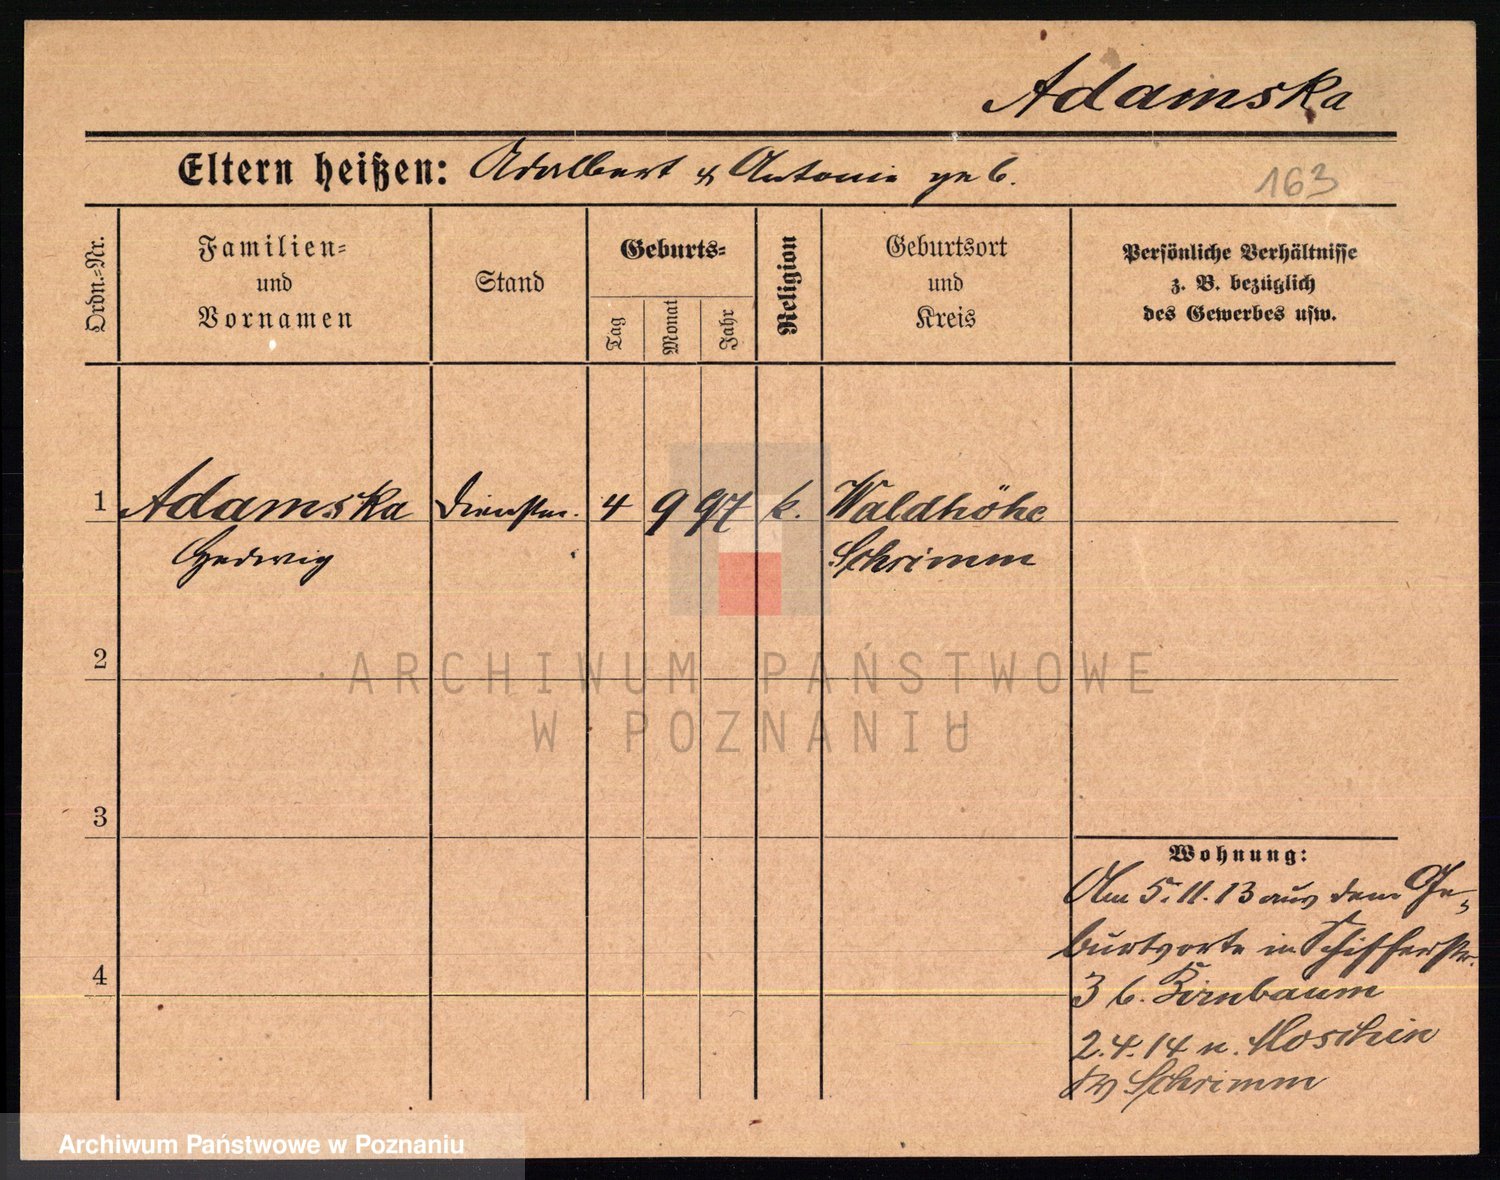 Adamska
Eltern heißen: Adalbert & Antonie geb.
163
Ordn.=Nr.
Familien=
und
Vornamen
Stand
Geburts=
Tag
Monat
Jahr
Religion
Geburtsort
und
Kreis
Persönliche Verhältnisse
z. B. bezüglich
des Gewerbes usw.
1 Adamska Dienstm. 4 9 97 k. Waldhöhe
Hedwig Schrimm
2
ARCHIWUM PAŃSTWOWE
W POZNANIU
3
Wohnung:
Am 5.11.13 aus dem Ge-
burtsorte in Schifferstr.
4
3 b. Birnbaum
2.4.14 n. Moschin
Schrimm
Archiwum Państwowe w Poznaniu